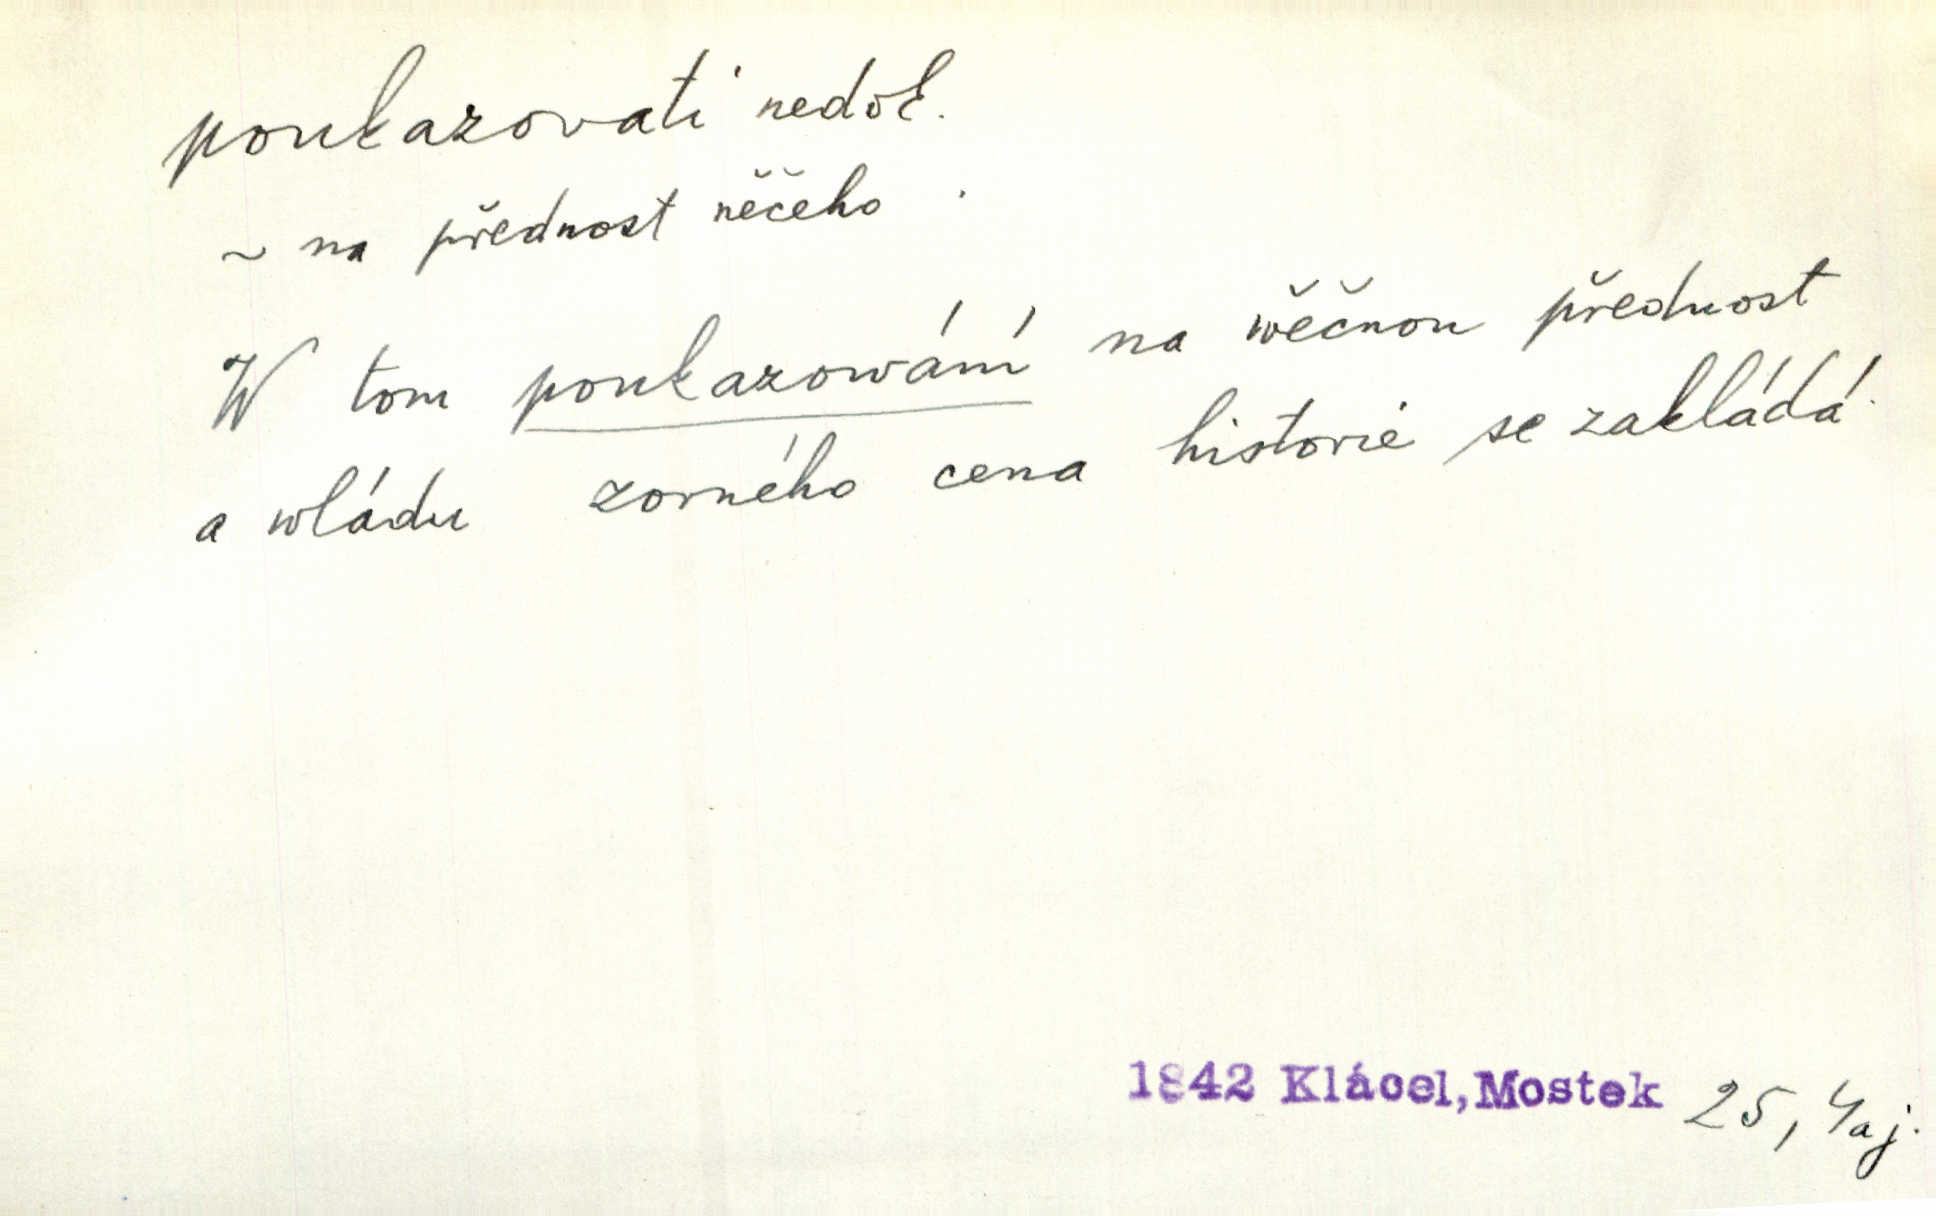 poukazovati nedok.
~ na přednost něčeho .
W tom poukazowání na wěčnou přednost
a wládu zorného cena historie se zakládá.
1842 Klácel, Mostek 25, 4aj.